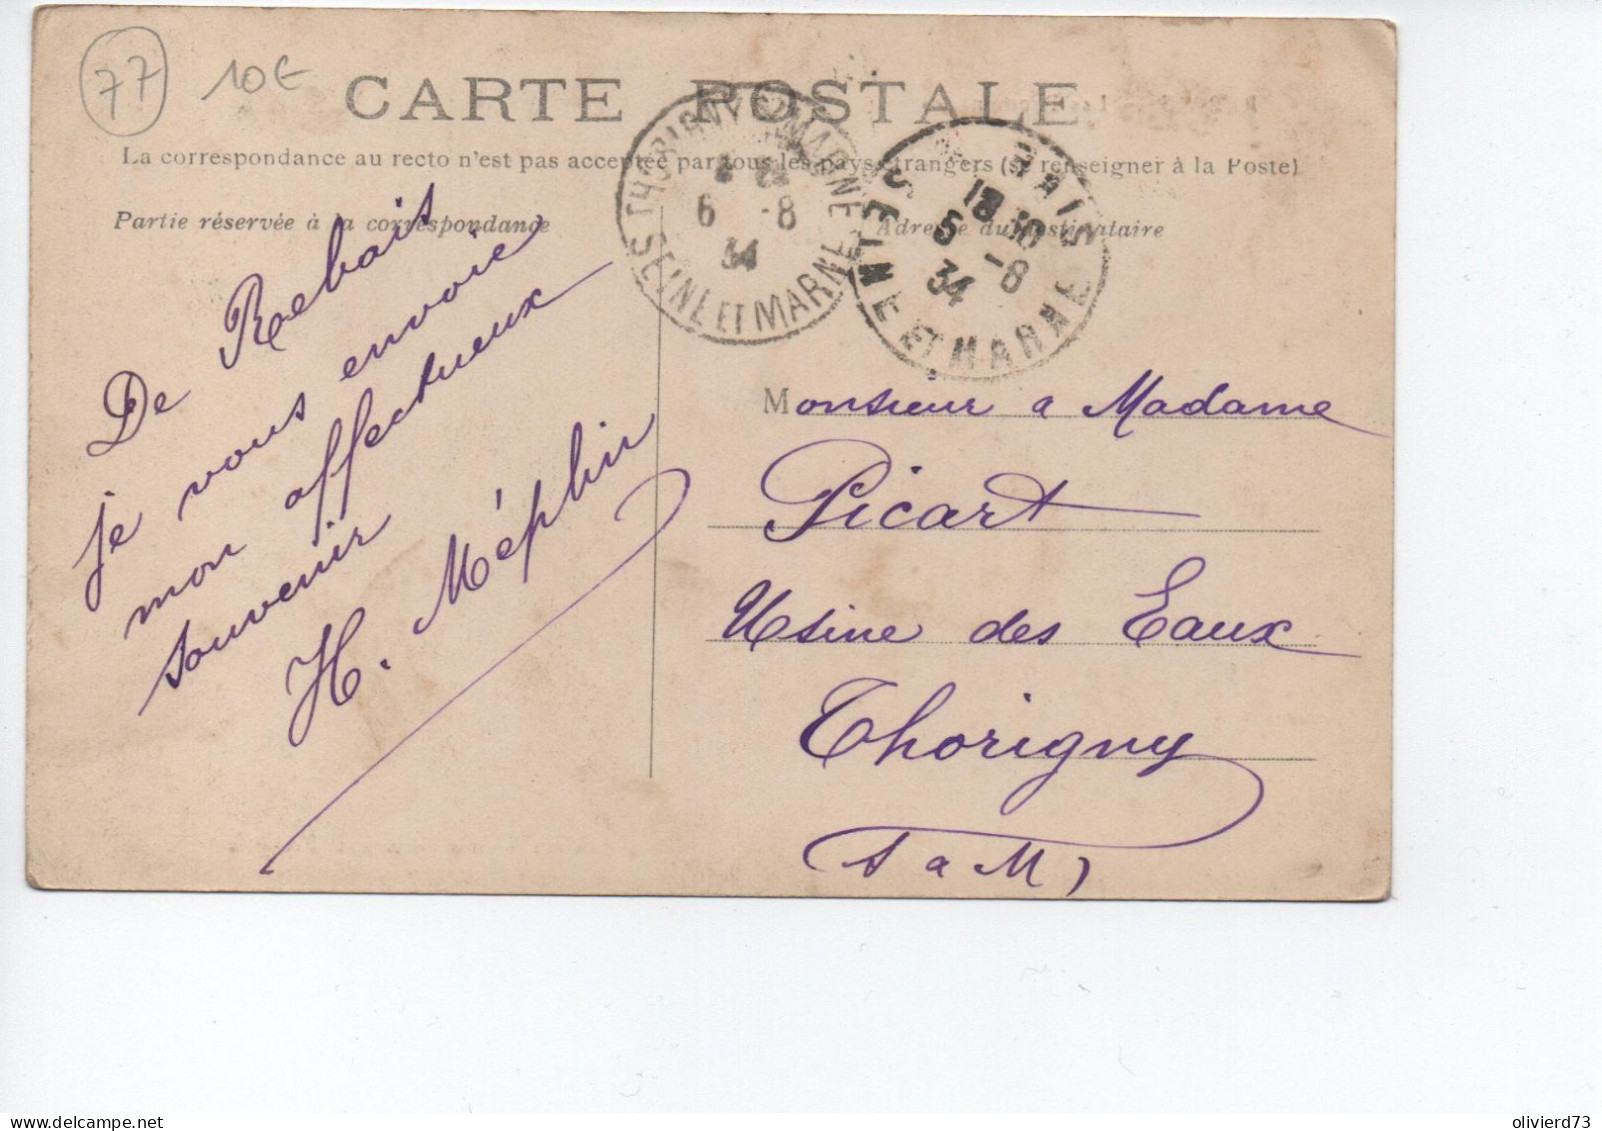 77
10€
CARTE POSTALE
La correspondance au recto n'est pas acceptée par tous les pays étrangers (se renseigner à la Poste)
Partie réservée à la correspondance
Adresse du destinataire
THORIGNY S MARNE
6 -8
34
SEINE ET MARNE
BAIS
18 10
6 -8
34
SEINE ET MARNE
De Rebais
je vous envoie
mon affectueux
souvenir
H. Méplin
Monsieur a Madame
Picart
Usine des Eaux
Thorigny
(S a M)
delcampe.net
olivierd73